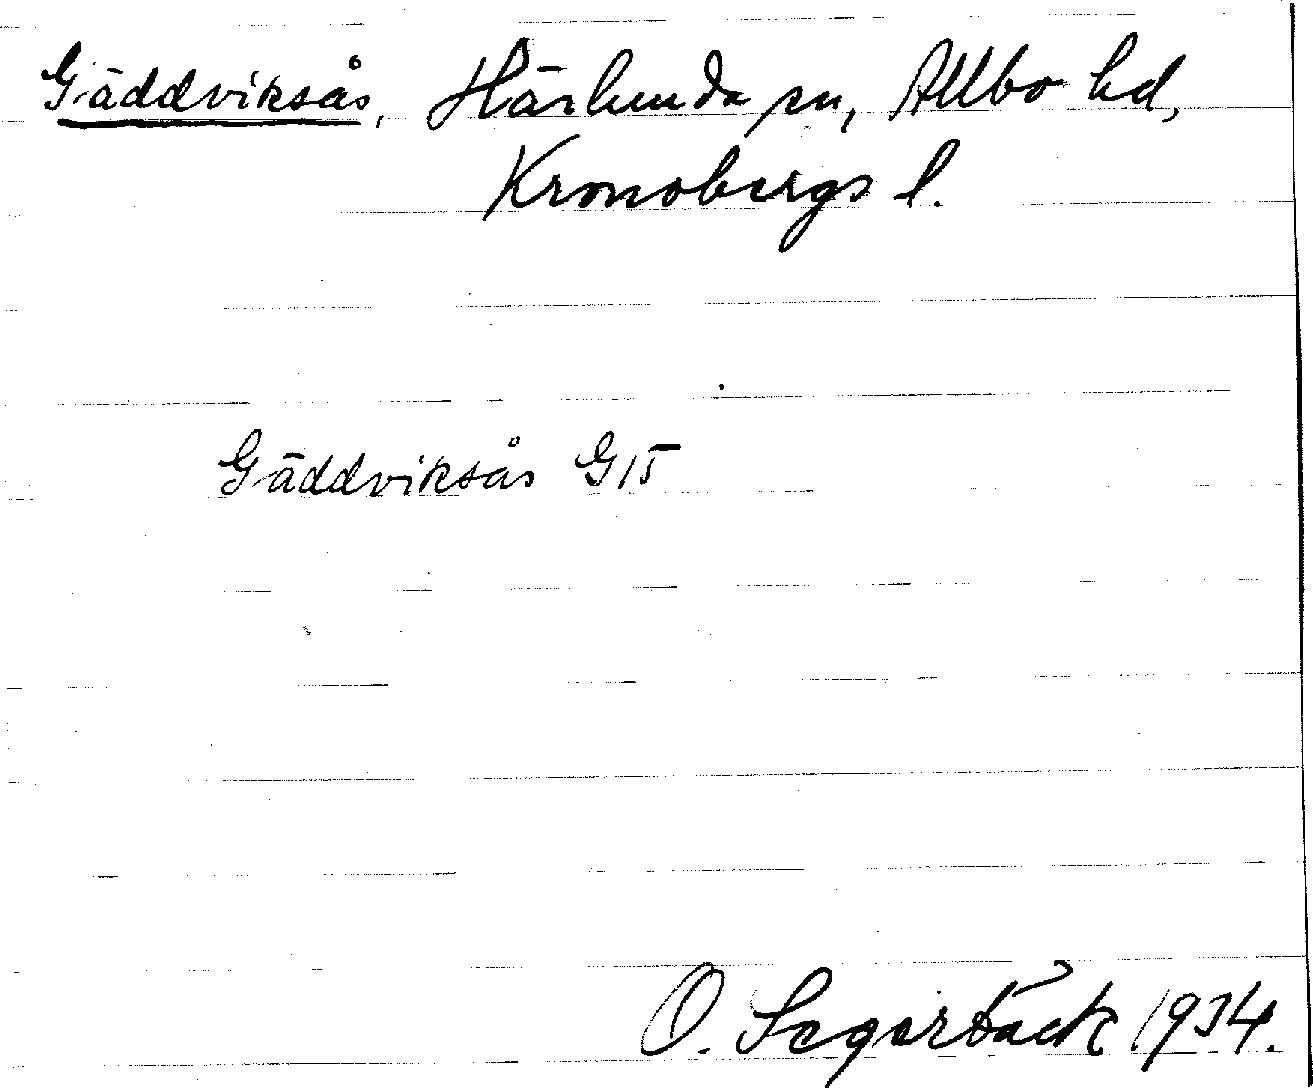 Gäddviksås, Härlunda sn, Allbo hd,
Kronobergs l.
Gäddviksås G15
O. Segerbäck 1934.